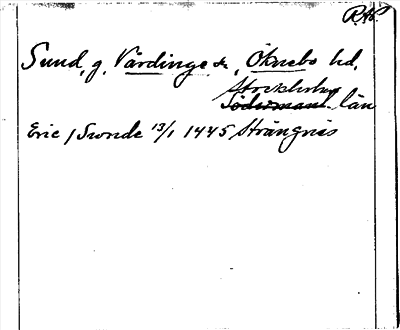 R.A.P.
Sund, g. Vårdinge sn, Öknebo hd,
Stockholms
Södermanl. län
Eric i Swnde 13/1 1445 Strängnäs